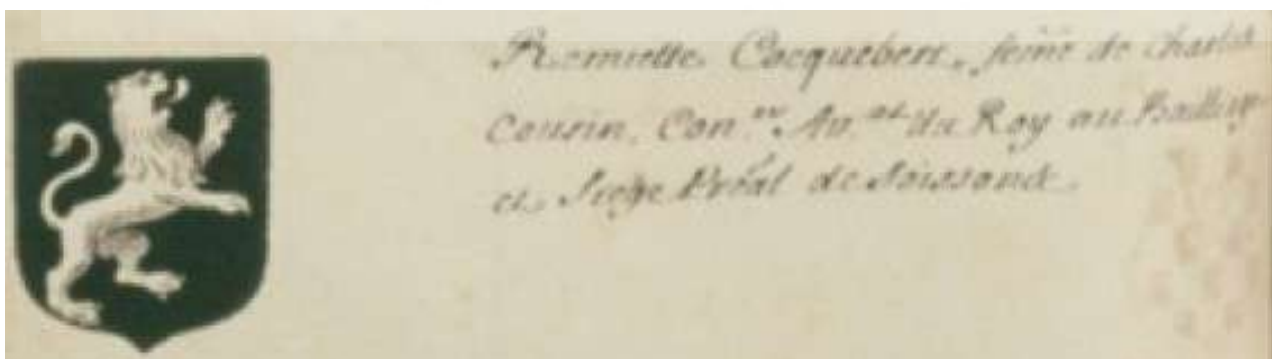 Remiette Cocquebert, feme de Charles
Cousin, Con.er Av.at du Roy au Bailliage
et Siege Préal de Soissons.